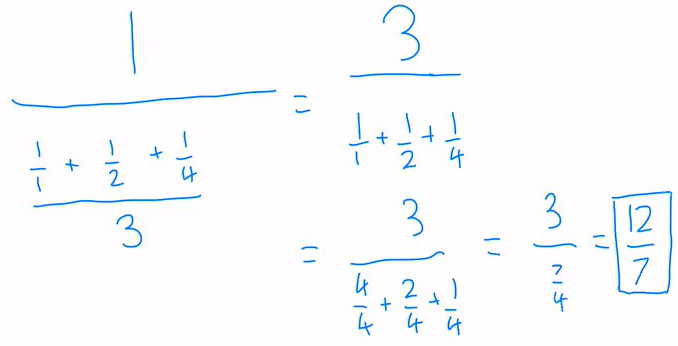 1 / ((1/1 + 1/2 + 1/4) / 3) = 3 / (1/1 + 1/2 + 1/4)
= 3 / (4/4 + 2/4 + 1/4) = 3 / (7/4) = 12/7